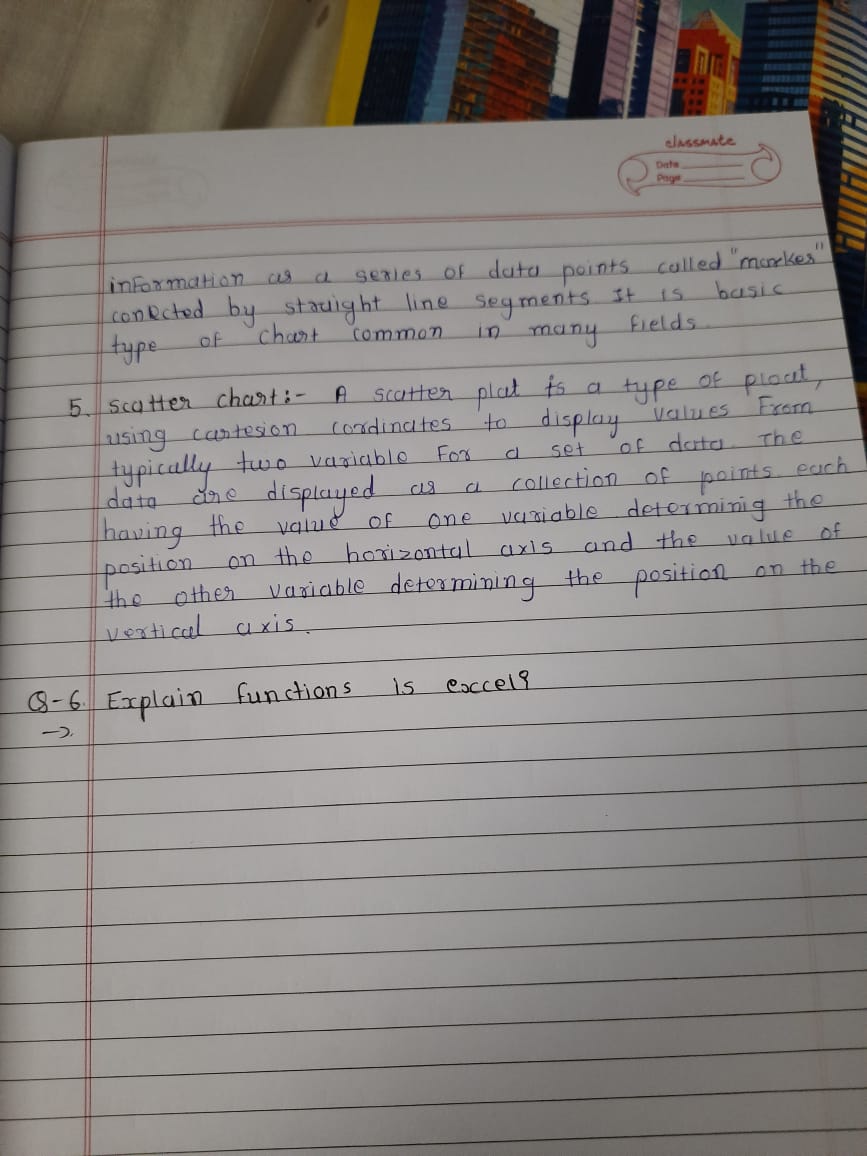 classmate
Date
Page
information as a series of data points called "marker"
conected by straight line segments It is basic
type of chart common in many fields.
5. Scatter chart:- A scatter plat is a type of ploat,
using cartesion cordinates to display values From
typically two variable For a set of data. The
data are displayed as a collection of points each
having the value of one variable determinig the
position on the horizontal axis and the value of
the other variable determining the position on the
vertical axis.
Q-6. Explain functions is excel?
→.